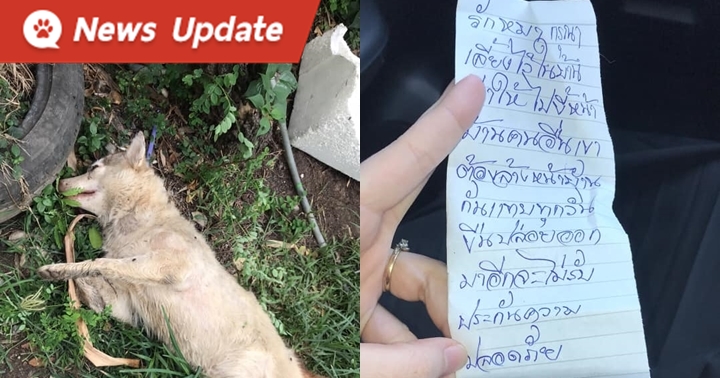 News Update
รักหมา กรุณา
เลี้ยงไว้ในบ้าน
ให้ ไปขี้หน้า
บ้านคนอื่น เขา
ต้องล้างหน้าบ้าน
กันแทบทุกวัน
ขืนปล่อยออก
มาอีกจะไม่รับ
ประกันความ
ปลอดภัย